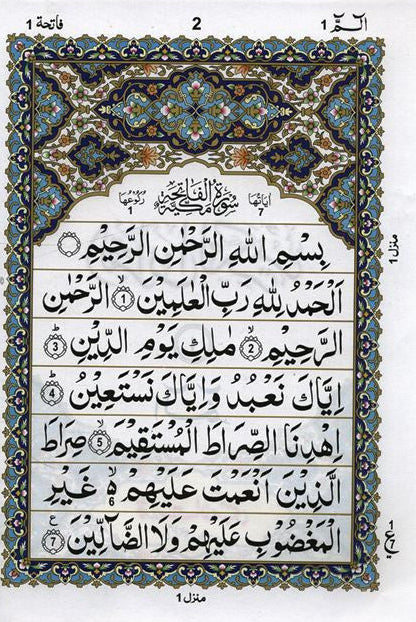 الٓمّٓ ١
2
فاتحة 1
اٰیَاتُهَا 7
سُوْرَةُ الْفَاتِحَةِ مَكِّيَّةٌ
رُكُوْعُهَا 1
بِسْمِ اللّٰهِ الرَّحْمٰنِ الرَّحِيْمِ
اَلْحَمْدُ لِلّٰهِ رَبِّ الْعٰلَمِيْنَ ۙ1 الرَّحْمٰنِ
الرَّحِيْمِ ۙ2 مٰلِكِ يَوْمِ الدِّيْنِ ؕ3
اِيَّاكَ نَعْبُدُ وَاِيَّاكَ نَسْتَعِيْنُ ؕ4
اِهْدِنَا الصِّرَاطَ الْمُسْتَقِيْمَ ۙ5 صِرَاطَ
الَّذِيْنَ اَنْعَمْتَ عَلَيْهِمْ ۙ۬6 غَيْرِ
الْمَغْضُوْبِ عَلَيْهِمْ وَلَا الضَّآلِّيْنَ ع7
منزل 1
1 ع 7
منزل 1